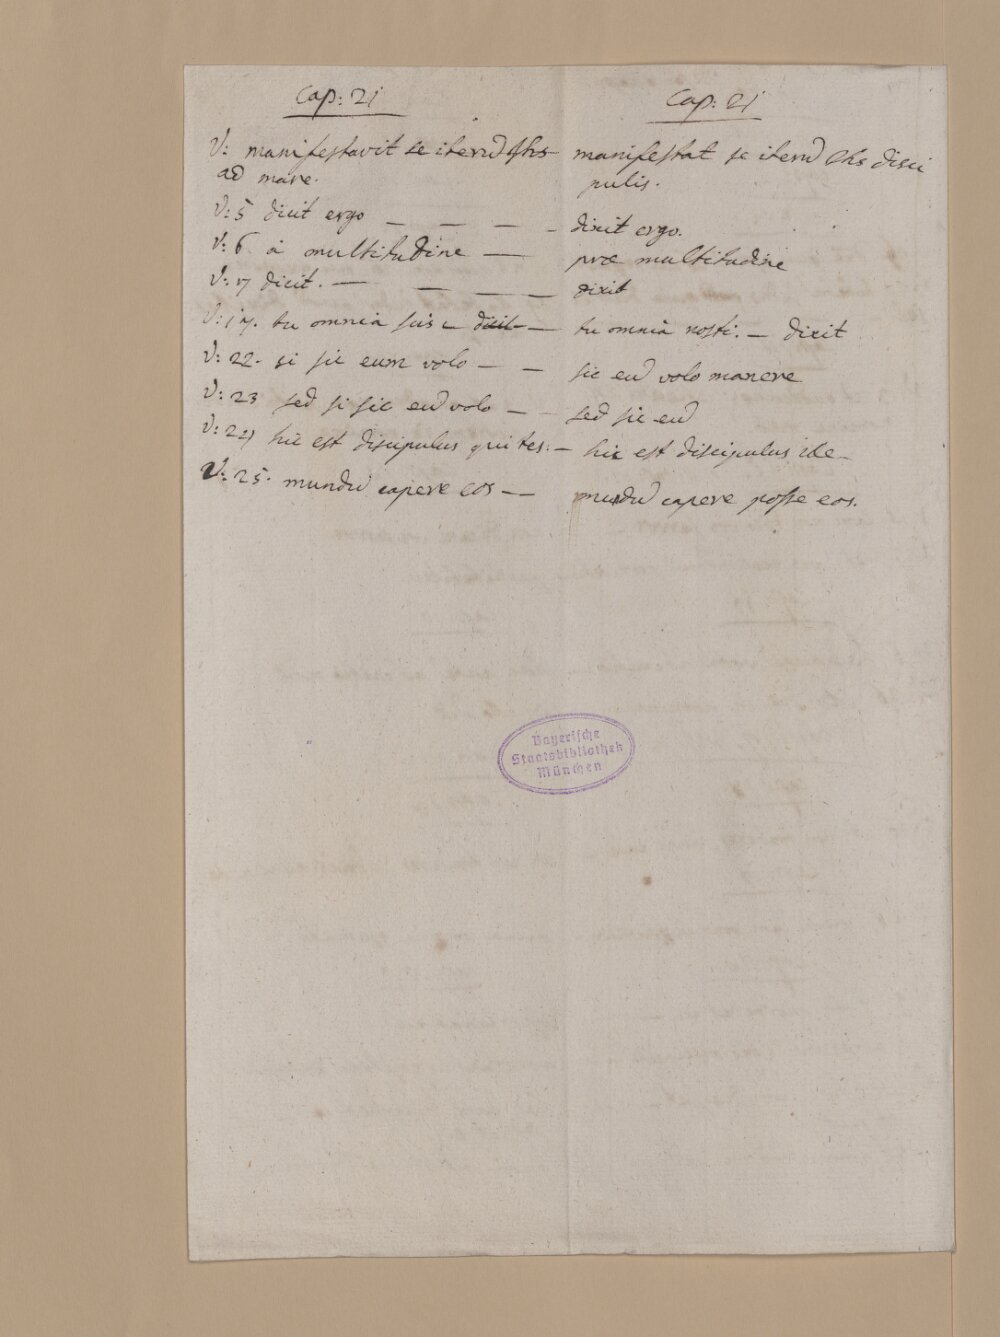 Cap: 21
V: manifestavit se iterū Jhs
ad mare.
V: 5 dicit ergo — — — —
V: 6 à multitudine —
V: 7 dicit. — — — —
V: 17. tu omnia scis — dicit —
V: 22. si sic eum volo — —
V: 23 sed si sic eū volo —
V: 24 hic est discipulus qui tes: —
V: 25. mundū capere eos — —
Cap: 21
manifestat se iterū Jhs disci
pulis.
dixit ergo.
præ multitudine
dixit
tu omnia nosti. — dixit
sic eū volo manere
sed sic eū
hic est discipulus ille —
mundū capere posse eos.
Bayerische
Staatsbibliothek
München